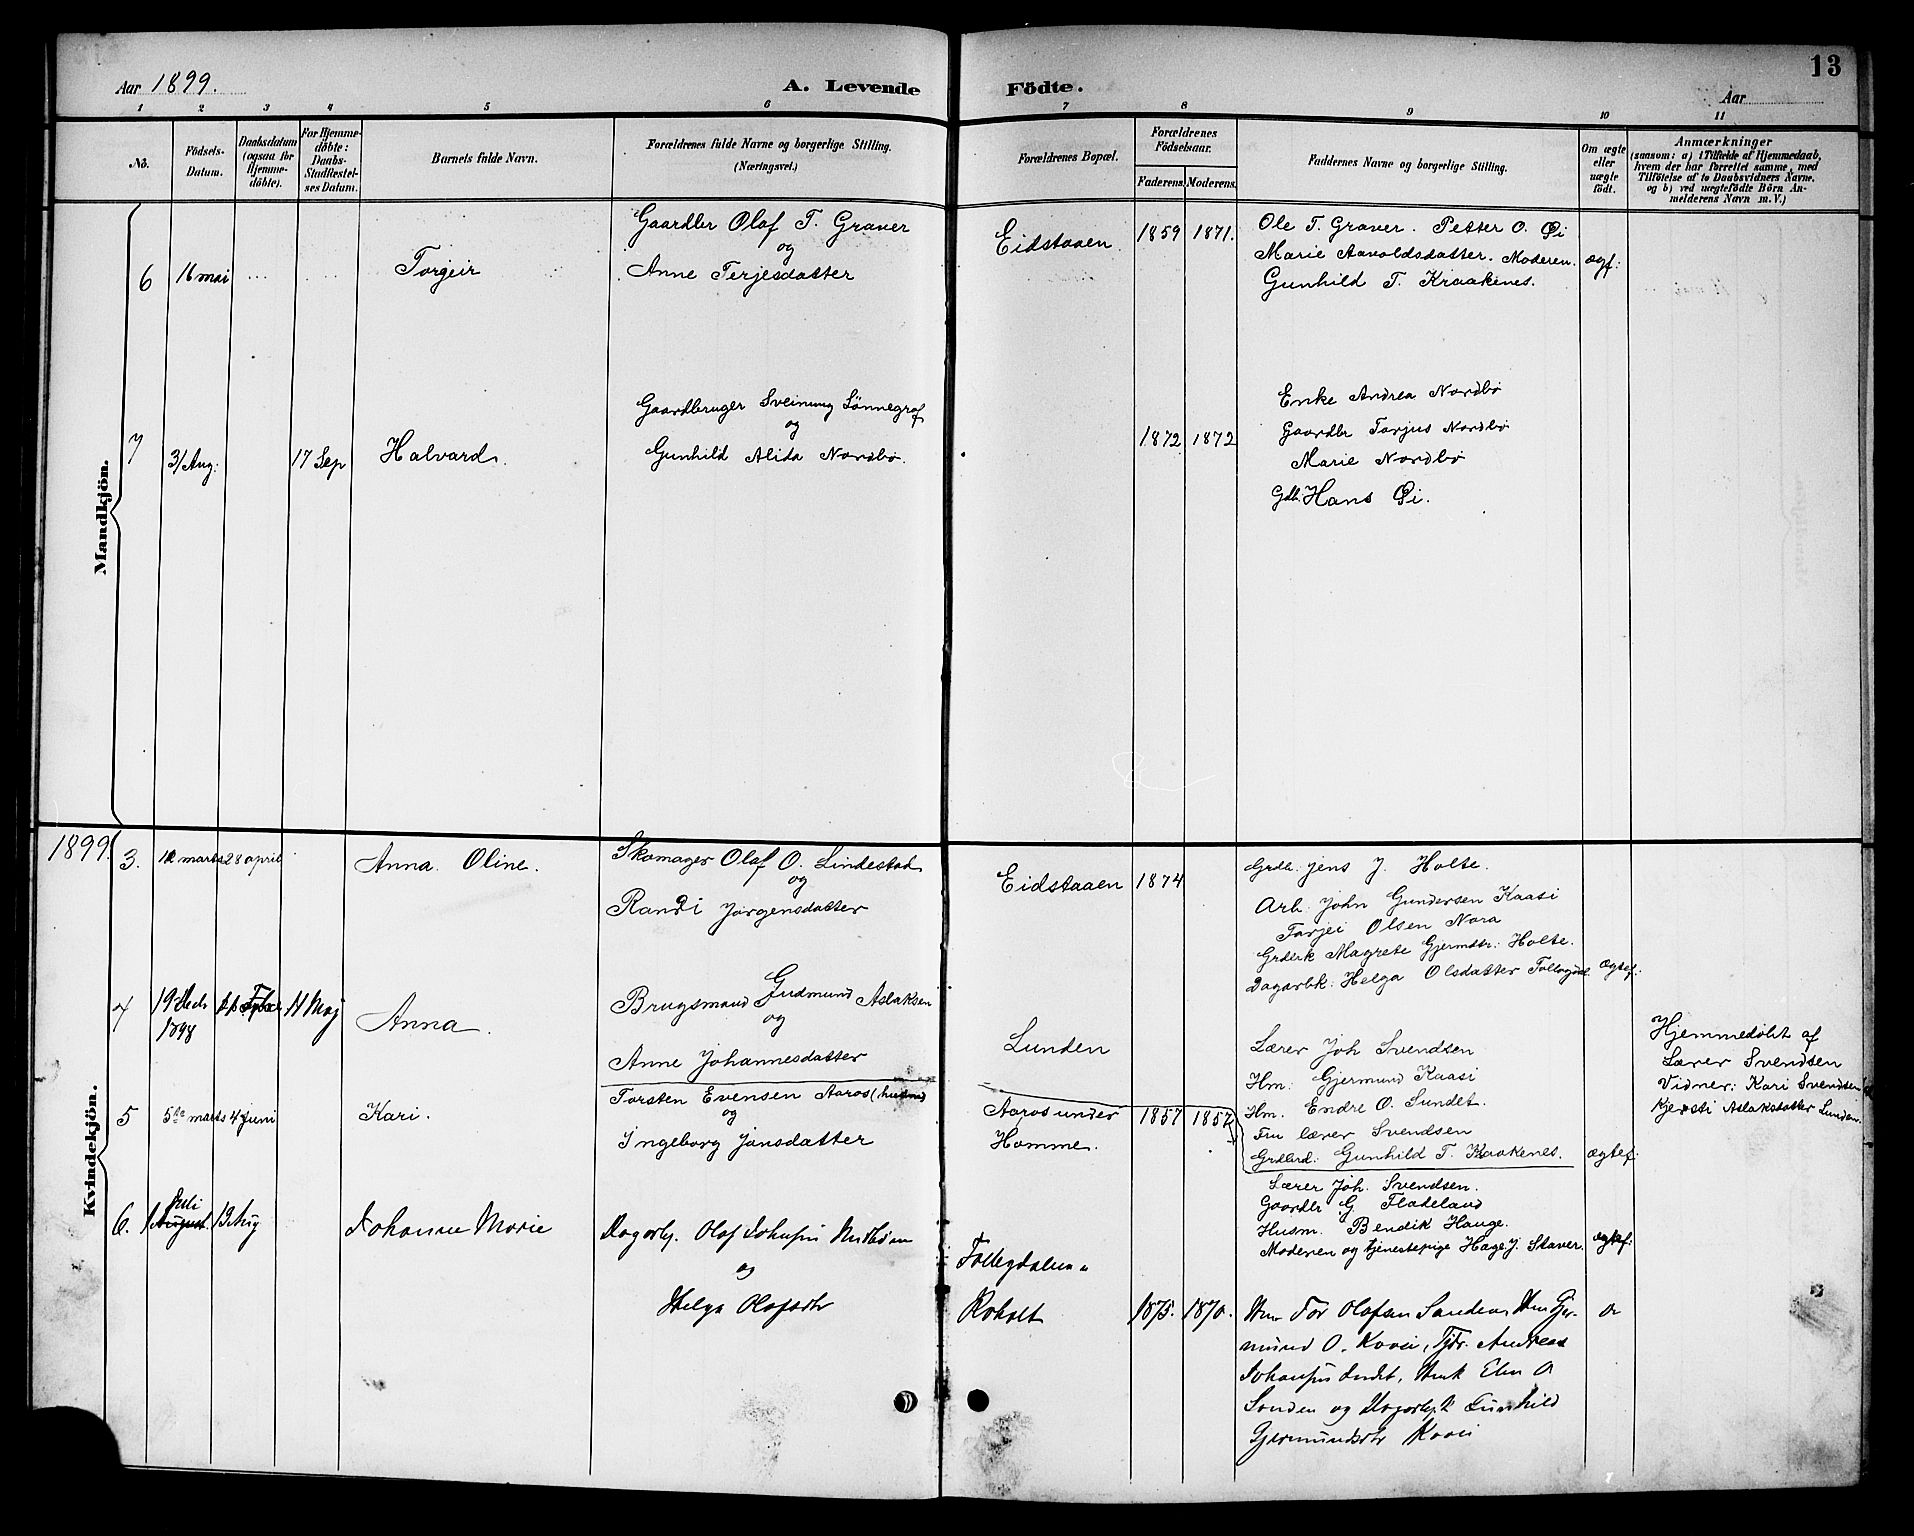 13
Aar 1899.
A. Levende Födte.
Aar
1 2 3 4 5 6 7 8 9 10 11
No.
Födsels-Datum.
Daabsdatum (ogsaa for Hjemmedöbte).
For Hjemmedöbte: Daabs-Stadfæstelses Datum.
Barnets fulde Navn.
Forældrenes fulde Navne og borgerlige Stilling.
(Næringsvei.)
Forældrenes Bopæl.
Forældrenes Födselsaar.
Faderens. Moderens.
Faddernes Navne og borgerlige Stilling.
Om ægte eller uægte födt.
Anmærkninger
(saasom: a) i Tilfælde af Hjemmedaab, hvem der har forrettet samme, med Tilföielse af to Daabsvidners Navne, og b) ved uægtefödte Börn Anmelderens Navn m. V.)
Mandkjön.
6 16 mai Torgeir
Gaardbr Olaf T. Graver
og
Anne Terjesdatter
Eidstaaen 1859 1871.
Ole T. Graver. Petter O. Øi
Marie Aavoldsdatter. Moderen.
Gunhild T. Kraakenes.
ægf:
7 3/Aug: 17 Sep Halvard.
Gaardbruger Sveinung Sønnegraf
og
Gunhild Alida Nordbø.
1872 1872
Enke Andrea Nordbø
Gaardbr Tarjus Nordbø
Marie Nordbø
Gdb. Hans Øi.
Kvindekjön.
1899. 3. 12 marts 28 april Anna Oline.
Skomager Olaf O. Lindestad
og
Randi Jørgensdatter
Eidstaaen 1874
Grdb. Jens J. Holte.
Arb. John Gundersen Kaasi
Tarjei Olsen Nora
Grderk Magrete Gjermdtr: Holte.
Dagarbk: Helga Olsdatter
Ægtef.
4 19 Decb 1898 11 Maj Anna.
Brugsmand Gudmund Aslaksen
og
Anne Johannesdatter
Lunden
Lærer Joh Svendsen
Hm: Gjermund Kaasi
Hm. Endre O. Sundet.
Fru lærer Svendsen
Grdbrd: Gunhild T. Kaakenes.
ægtef.
Hjemmedøbt af
Lærer Svendsen
Vidner: Kari Svendsen
Kjersti Aslaksdatter Lunden.
5 5te marts 4 juni Kari.
Torsten Evensen Aaros (husmd
og
Ingeborg Jonsdatter
Aaros under
Homme.
1857 1857
Lærer Joh. Svendsen.
Gaardbr G. Fladeland
Husm. Bendik Hauge.
Moderen og tjenestepige Hage J. Staver.
ægtef:
6. 1 August Juli 13 Aug Johanne Marie
Dagarb. Olaf Johnsen
og
Helga Olafsdtr
Follegdalen
Roholt 1875. 1870.
Hm Tor Olafsen Sanden, Hm Gjer-
mund O. Kaasi, Tjdr. Andreas
Johansen Sundet, Hmk Elen O
Sanden og Dagarb.k Gunhild
Gjermundsdtr Kaasi